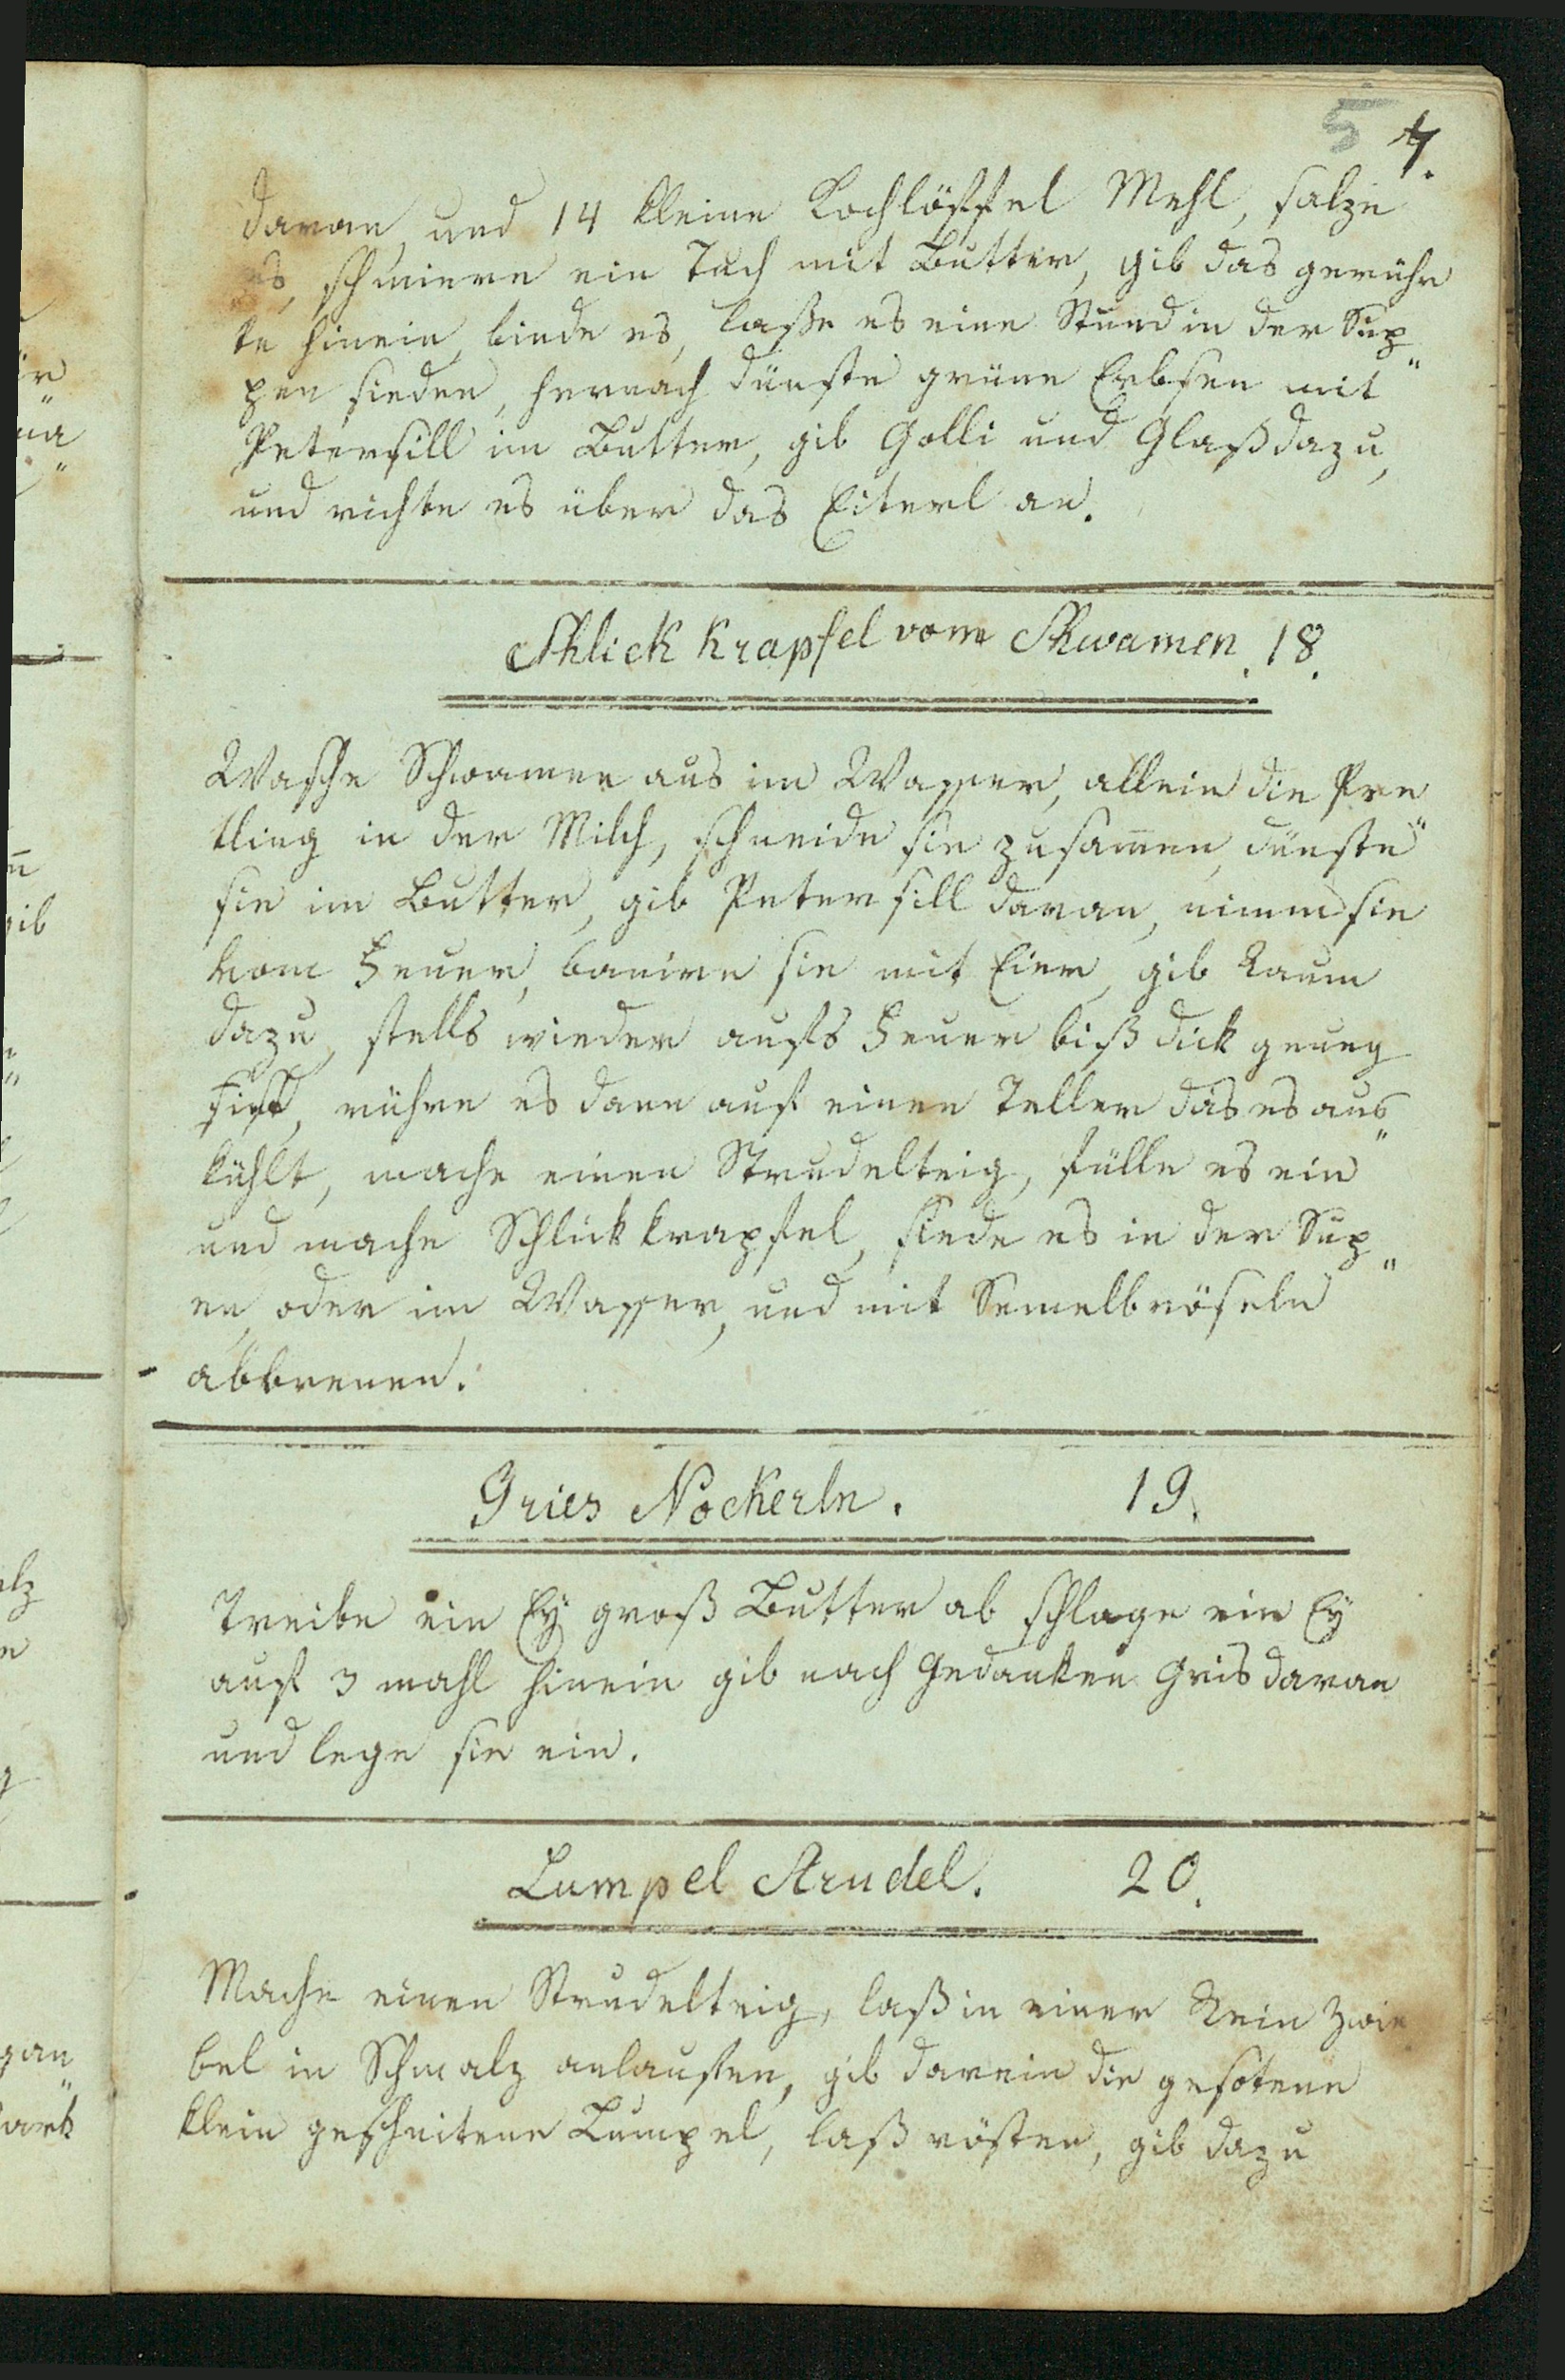 5 7.
daran, und 14 kleine Kochlöffel Mehl, salze
es, schmiere ein Tuch mit Butter, gib das gerühr
te hinein, binde es, lasse es eine Stund in der Sup„
pen sieden, hernach dünste grüne Erbsen mit
Petersill im Butter, gib Golli und Glaß dazu,
und richte es über das Eiterl an.
Schlick Krapfel vom Schwamen. 18.
Wasche Schwamen aus im Wasser, allein die Pre„
tling in der Milch, schneide sie zusam̄en, dünste
sie im Butter, gib Petersill daran, nimm sie
vom Feuer, banire sie mit Eier, gib Raum
dazu, stells wieder aufs Feuer biß dick genug
ist, rühre es dann auf einen Teller das es aus„
kühlt, mache einen Strudelteig, fülle es ein
und mache Schlickkrapfel, siede es in der Sup„
en, oder im Wasser, und mit Semelbröseln
abbrenen.
Gries Nockerln. 19.
Treibe ein Ey groß Butter ab schlage ein Ey
auf 3 mahl hinein gib nach Gedanken Gris daran
und lege sie ein.
Lumpel Strudel. 20.
Mache einen Strudelteig, laß in einer Rein Zwie
bel in Schmalz anlaufen, gib darein die gesotene
klein geschnitene Lumpel, laß rösten, gib dazu